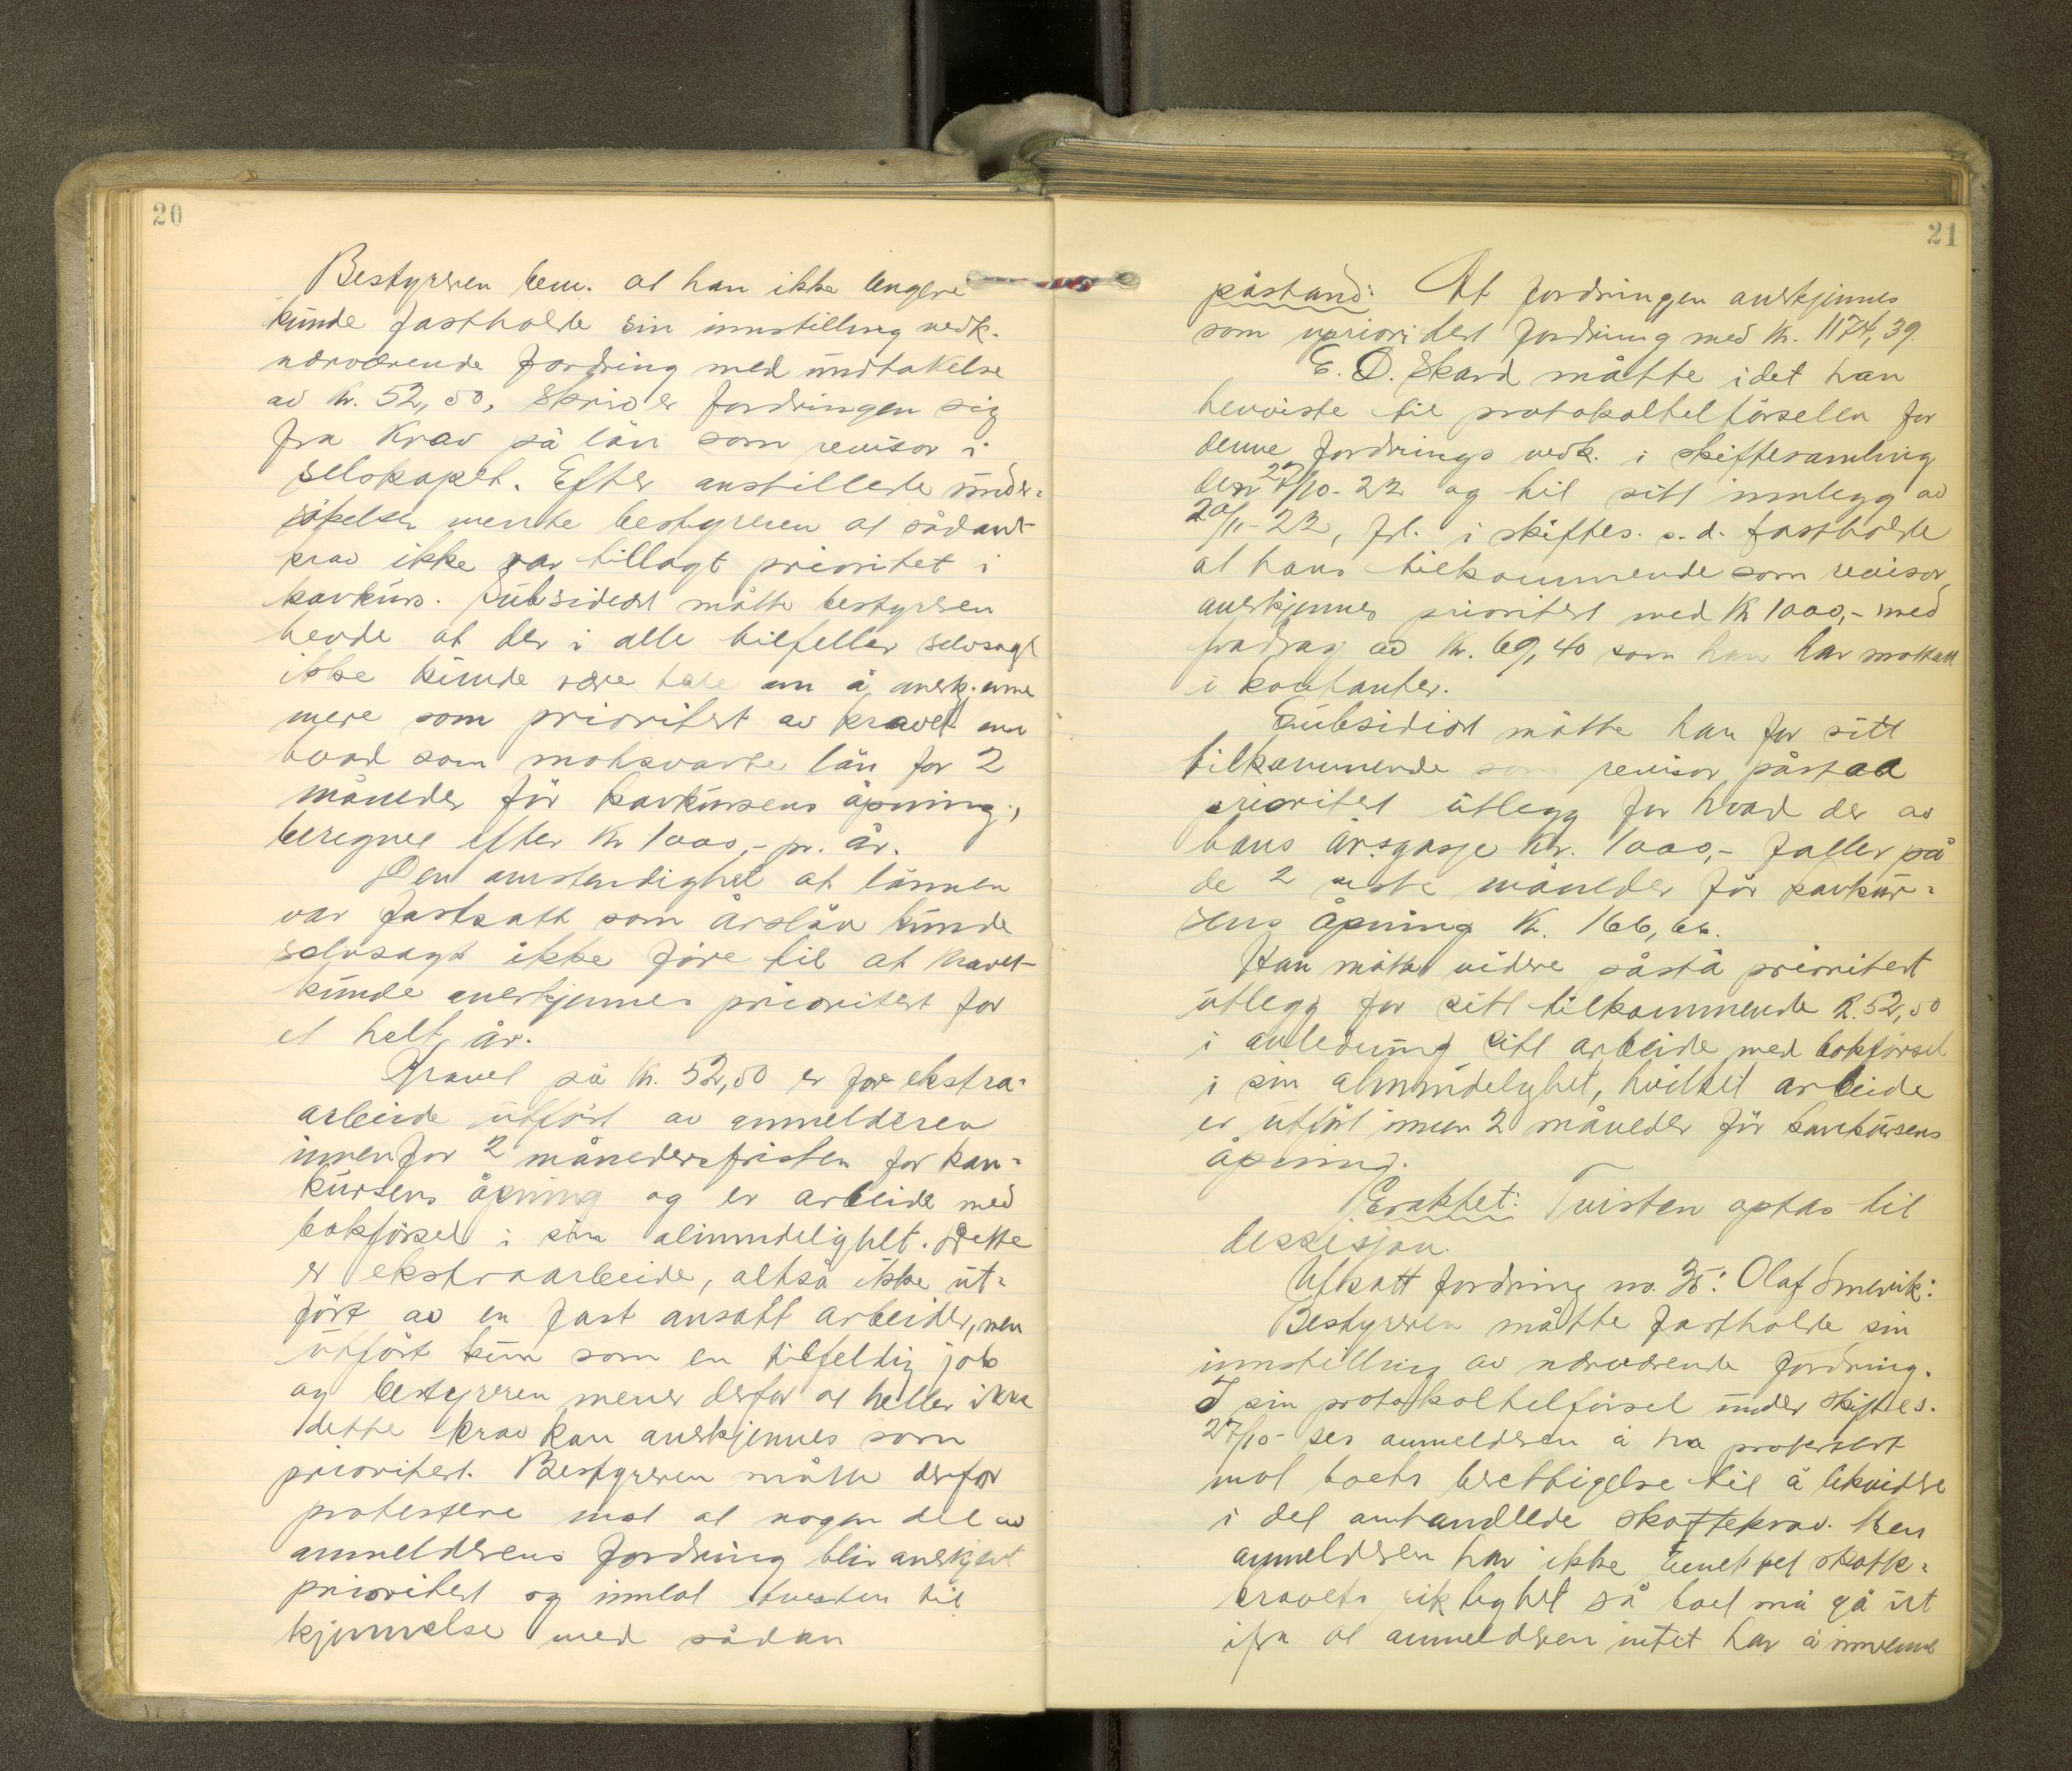 20
Bestyreren bem. at han ikke lengere
kunde fastholde sin innstilling vedk.
nærværende fordring med undtakelse
av kr. 52,50, skriver fordringen sig
fra krav på lön som revisor i
selskapet. Efter anstillede under-
søkelser mente bestyreren at sådant
krav ikke var tillagt prioritet i
konkurs. Subsidiært måtte bestyreren
hevde at der i alle tilfeller selvsagt
ikke kunde være tale om å anerkjenne
mere som prioritert av kravet enn
hvad som motsvarte lön for 2
måneder för konkursens åpning,
beregnet efter kr 1000,- pr. år.
Den omstendighet at lönnen
var fastsatt som årslön kunde
selvsagt ikke före til at kravet
kunde anerkjennes prioritert for
et helt år.
Kravet på kr. 52,50 er for ekstra-
arbeide utfört av anmelderen
innenfor 2 månedersfristen for kon-
kursens åpning og er arbeide med
bokförsel i sin alimindelighet. Dette
er ekstraarbeide, altså ikke ut-
fört av en fast ansatt arbeider, men
utfört kun som en tilfeldig job
og bestyreren mener derfor at heller ikke
dette krav kan anerkjennes som
prioritert. Bestyreren måtte derfor
protestere mot at nogen del av
anmelderens fordring blir anerkjent
prioritert og innlot tvisten til
kjennelse med sådan
21
påstand: At fordringen anerkjennes
som uprioritert fordring med kr. 1174,39.
E. O. Skard måtte idet han
henviste til protokoltilförselen for
denne fordrings vedk. i skiftesamling
den 27/10-22 og til sitt innlegg av
20/11-22, frl. i skiftes. s. d. fastholde
at hans tilkommende som revisor,
anerkjennes prioritert med kr 1000,- med
fradrag av kr. 69,40 som han har mottatt
i kontanter.
Subsidiært måtte han for sitt
tilkommende som revisor påstaa
prioritert utlegg for hvad der av
hans årsgasje kr. 1000,- faller på
de 2 siste måneder för konkur-
sens åpning kr. 166,66.
Han måtte videre påstå prioritert
utlegg for sitt tilkommende k. 52,50
i anledning sitt arbeide med bokförsel
i sin almindelighet, hvilket arbeide
er utfört innen 2 måneder för konkursens
åpning.
Eraktet: Tvisten optas til
dessisjon.
Utsatt fordring no. 35: Olaf Smevik:
Bestyreren måtte fastholde sin
innstilling av nærværende fordring.
I sin protokoltilförsel under skiftes.
27/10- ses anmelderen å ha protestert
mot boets berettigelse til å likvidere
i det omhandlede skattekrav. Men
anmelderen har ikke benektet skatte-
kravets riktighet så boet må gå ut
ifra at anmelderen intet har å innvende